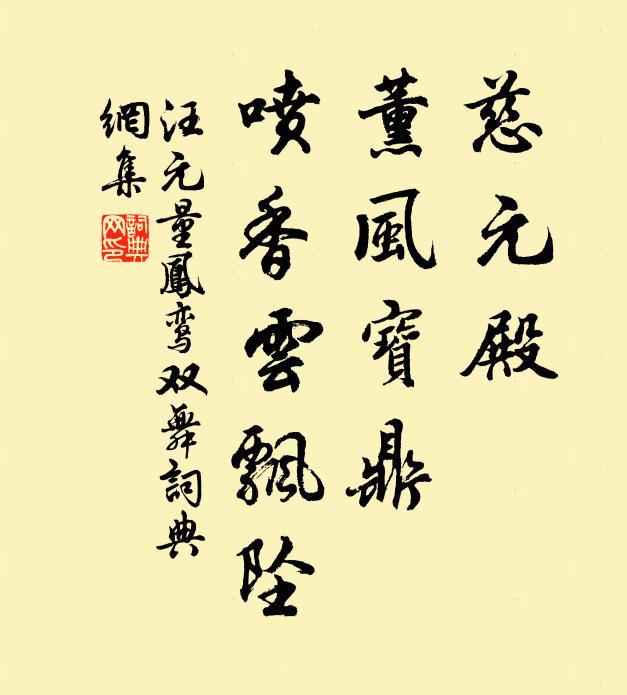 慈元殿
薰風寶鼎
噴香雲飄坠
汪元量鳳鸾双舞詞典
網集
詞典网印